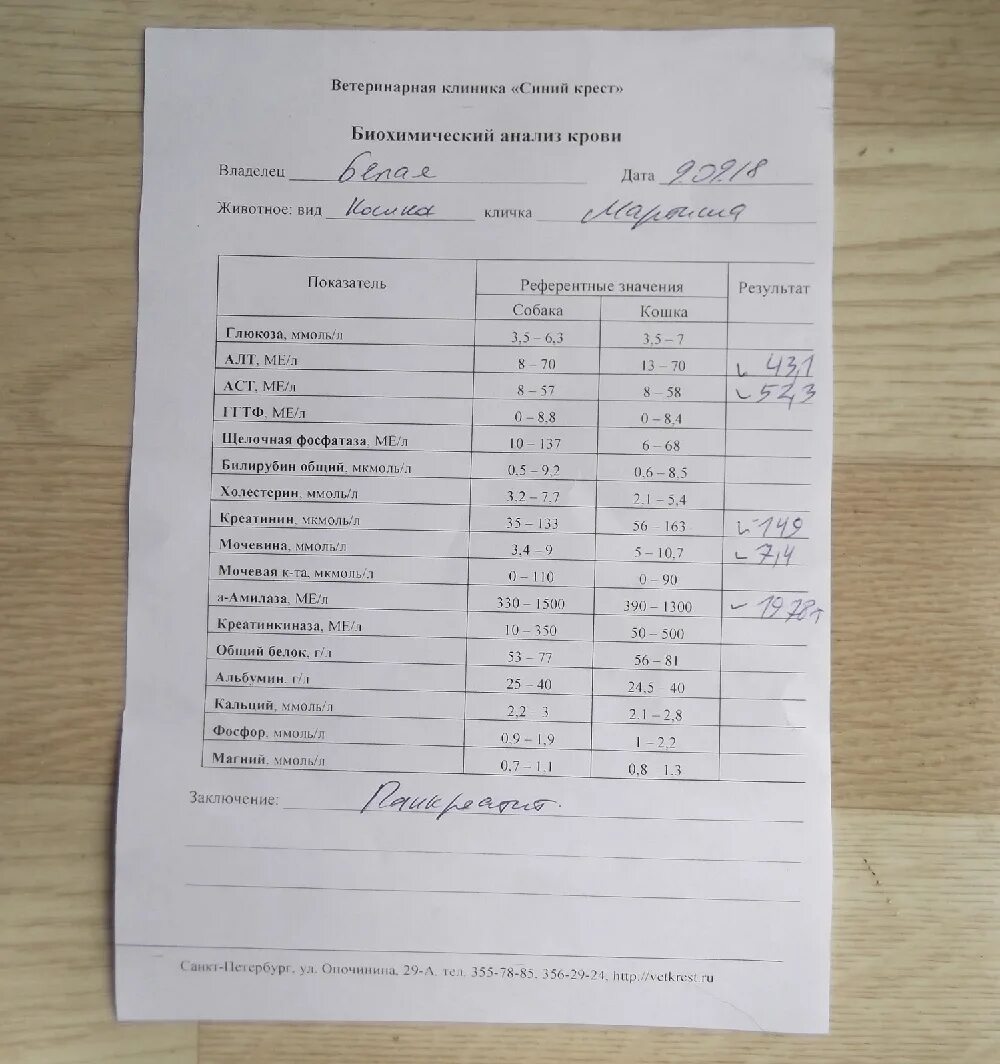 Ветеринарная клиника «Синий крест»
Биохимический анализ крови
Владелец Белая Дата 9.02.18
Животное: вид Кошка кличка
Показатель Референтные значения Результат
Собака Кошка
Глюкоза, ммоль/л 3,5 – 6,3 3,5 – 7
АЛТ, МЕ/л 8 – 70 13 – 70 43,1
АСТ, МЕ/л 8 – 57 8 – 58 52,3
ГГТФ, МЕ/л 0 – 8,8 0 – 8,4
Щелочная фосфатаза, МЕ/л 10 – 137 6 – 68
Билирубин общий, мкмоль/л 0,5 – 9,2 0,6 – 8,5
Холестерин, ммоль/л 3,2 – 7,7 2,1 – 5,4
Креатинин, мкмоль/л 35 – 133 56 – 163 149
Мочевина, ммоль/л 3,4 – 9 5 – 10,7 7,4
Мочевая к-та, мкмоль/л 0 – 110 0 – 90
а-Амилаза, МЕ/л 330 – 1500 390 – 1300 1978
Креатинкиназа, МЕ/л 10 – 350 50 – 500
Общий белок, г/л 53 – 77 56 – 81
Альбумин, г/л 25 – 40 24,5 – 40
Кальций, ммоль/л 2,2 – 3 2,1 – 2,8
Фосфор, ммоль/л 0,9 – 1,9 1 – 2,2
Магний, ммоль/л 0,7 – 1,1 0,8 – 1,3
Заключение: Панкреатит.
Санкт-Петербург, ул. Опочинина, 29-А, тел. 355-78-85, 356-29-24, http://vetkrest.ru